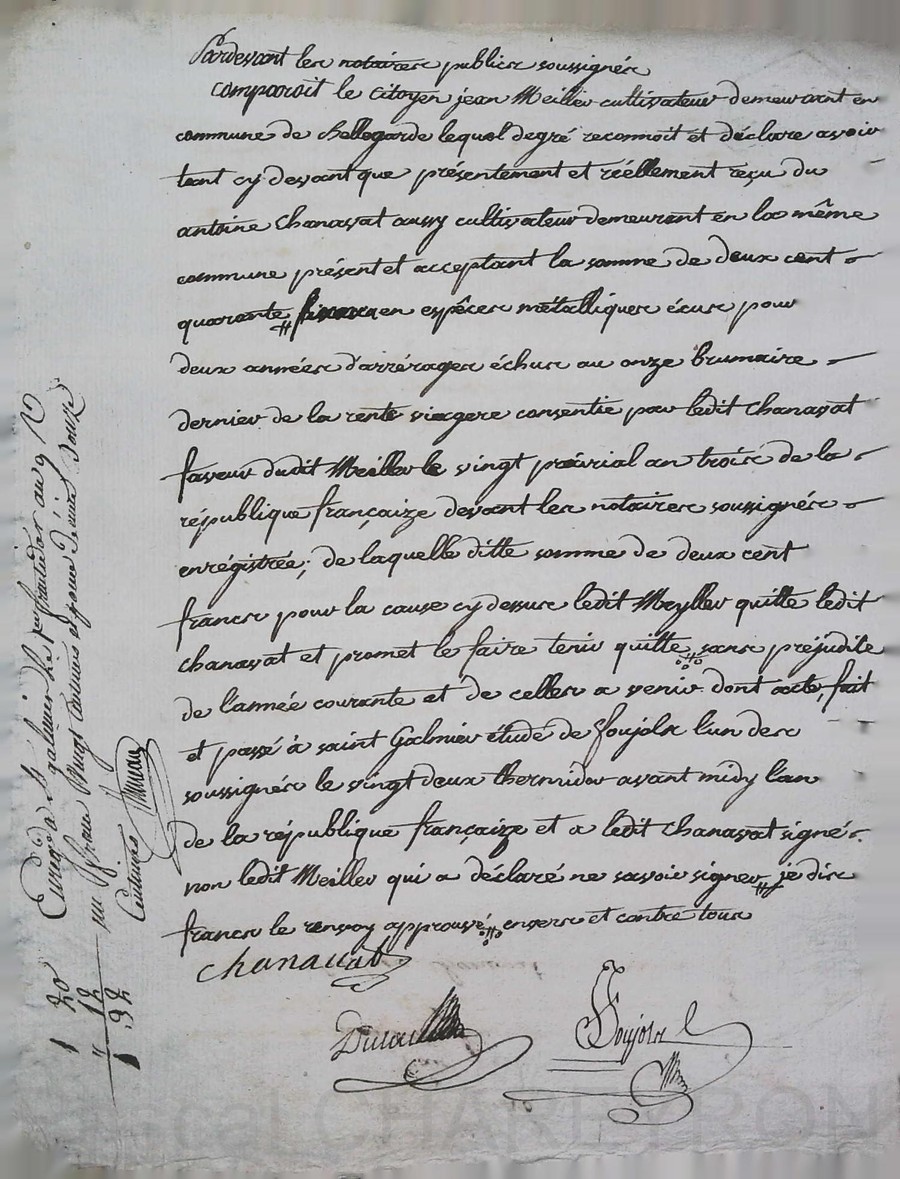 Pardevant les notaires publics soussignés
comparoit le Citoyen jean Meiller cultivateur demeurant en
commune de Bellegarde lequel de gré reconnoit et déclare avoir
tant cy devant que présentement et réellement reçu du
antoine Chanavat aussy cultivateur demeurant en la même
commune présent et acceptant la somme de deux cent
quarante en espêces métalliques écus pour
deux années d'arrérages échus au onze brumaire
dernier de la rente viagere consentie par ledit Chanavat
faveur dudit Meiller le vingt prairial an trois de la
république françaize devant les notaires soussignés
enrégistrée; de laquelle ditte somme de deux cent
francs pour la cause cy dessus ledit Meyller quitte ledit
chanavat et promet le faire tenir quitte, sans préjudice
de l'année courante et de celles a venir. dont acte, fait
et passé à saint Galmier étude de Soujols l'un des
soussignés le vingt deux thermidor avant midy l'an
de la république françaize et a ledit Chanavat signé
non ledit Meiller qui a déclaré ne savoir signer je dis
francs le renvoy approuvé, envers et contre tous
Chanavat
Soujols
Enrgé a St galmier le fructidor an 9 R
un franc vingt centimes et pour dixième douze
Centimes
1 20
" 12
1 32
Pascal CHAREYRON